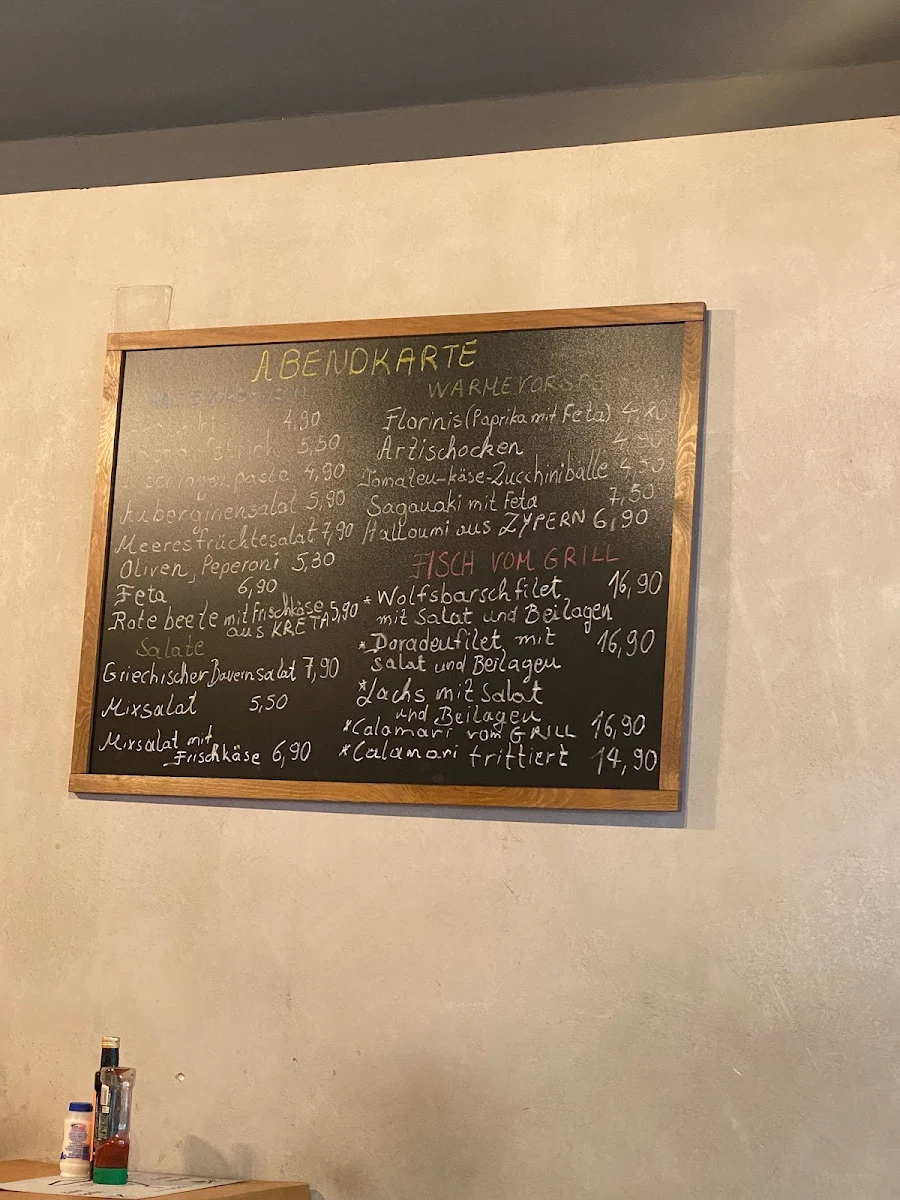 ABENDKARTE
4,90
5,50
paste 4,90
Auberginensalat 5,90
Meeresfrüchtesalat 7,90
Oliven, Peperoni 5,30
Feta 6,90
Rote beete mit Frischkäse 5,90
aus KRETA
Salate
Griechischer Bauernsalat 7,90
Mixsalat 5,50
Mixsalat mit
Frischkäse 6,90
WARMEVORSPE
Florinis (Paprika mit Feta)
Artischocken
Tomaten-käse-Zucchinibälle 4,50
Saganaki mit Feta 7,50
Halloumi aus ZYPERN 6,90
FISCH VOM GRILL
* Wolfsbarschfilet 16,90
mit Salat und Beilagen
* Doradenfilet mit 16,90
salat und Beilagen
* Lachs mit Salat
und Beilagen
* Calamari vom GRILL 16,90
* Calamari frittiert 14,90